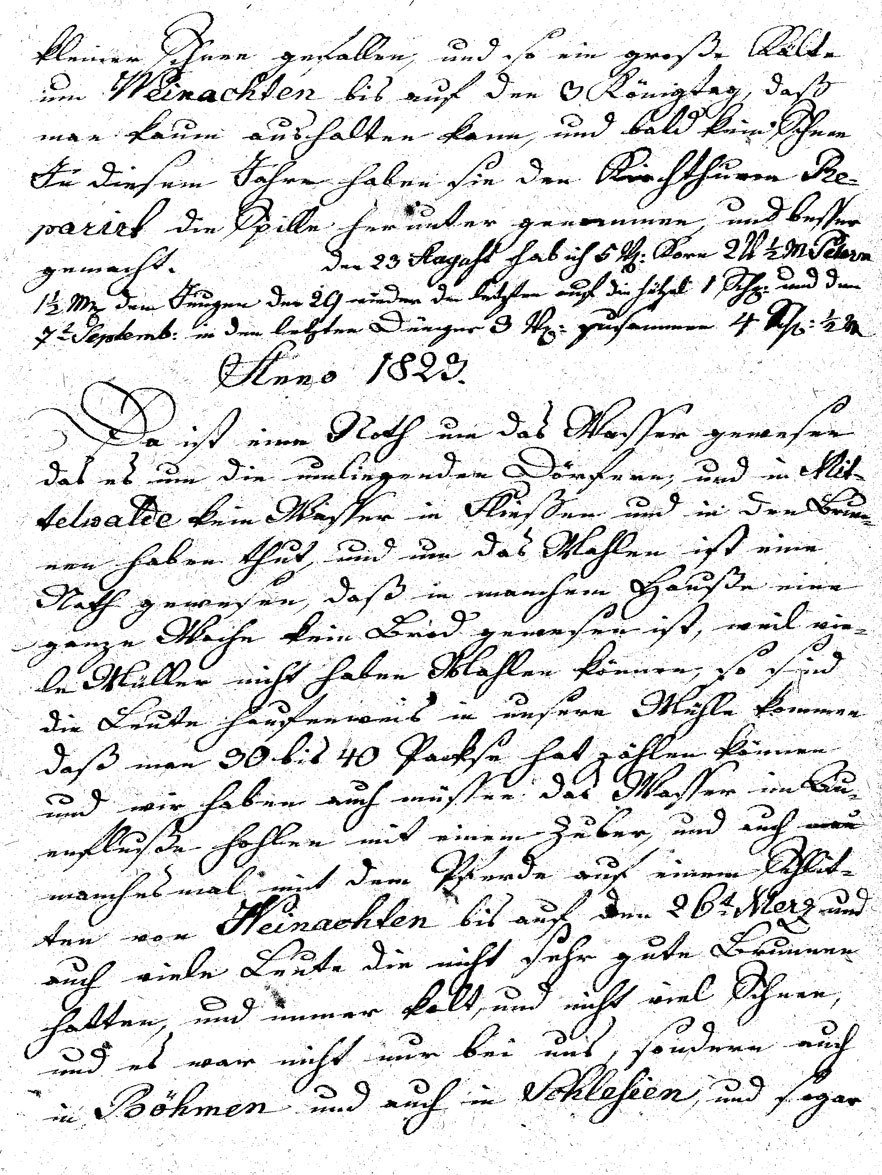 kleiner Schnee gefallen, und so ein große Kälte
um Weinachten bis auf den 3 Königtag, daß
man kaum aushalten kann, und bald kein Schnee
In diesem Jahre haben sie den Kirchthurm Re-
pariet die Spille herunter genommen, und besser
gemacht. den 23 August hab ich 5 Korn
1½ den Jungen den 29 wieder die letzten auf die 1 und den
7t Septemb: in den letzten Dünger 3 zusammen 4 ½
Anno 1823.
Da ist eine Noth um das Wasser gewesen
das es um die umliegenden Dörfern, und in Mit-
telwalde kein Wasser in Flüessen und in den Brun-
nen haben thut, und um das Mahlen ist eine
Noth gewesen, daß in manchem Hauße eine
ganze Woche kein Brod gewesen ist, weil vie-
le Müller nicht haben Mahlen können, so sind
die Leute haufenweis in unsere Mühle kommen
daß man 30 bis 40 Packse hat zählen können
und wir haben auch müssen das Wasser im Lau-
enfluße hohlen mit einem Zuber, und auch
manchesmal mit dem Pferde auf einem Schlit-
ten von Weinachten bis auf den 26t Merz und
auch viele Leute die nicht sehr gute Brunnen
hatten, und immer kalt, und nicht viel Schnee,
und es war nicht nur bei uns, sondern auch
in Böhmen und auch in Schlesien, und sogar